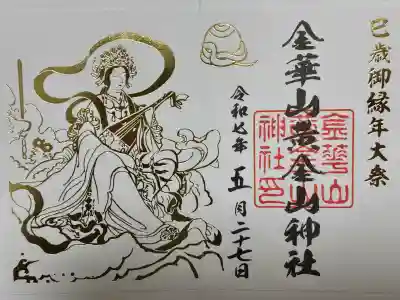 巳歳御縁年大祭
金華山黄金山神社
金華山
黄金山
神社印
令和七年五月二十七日